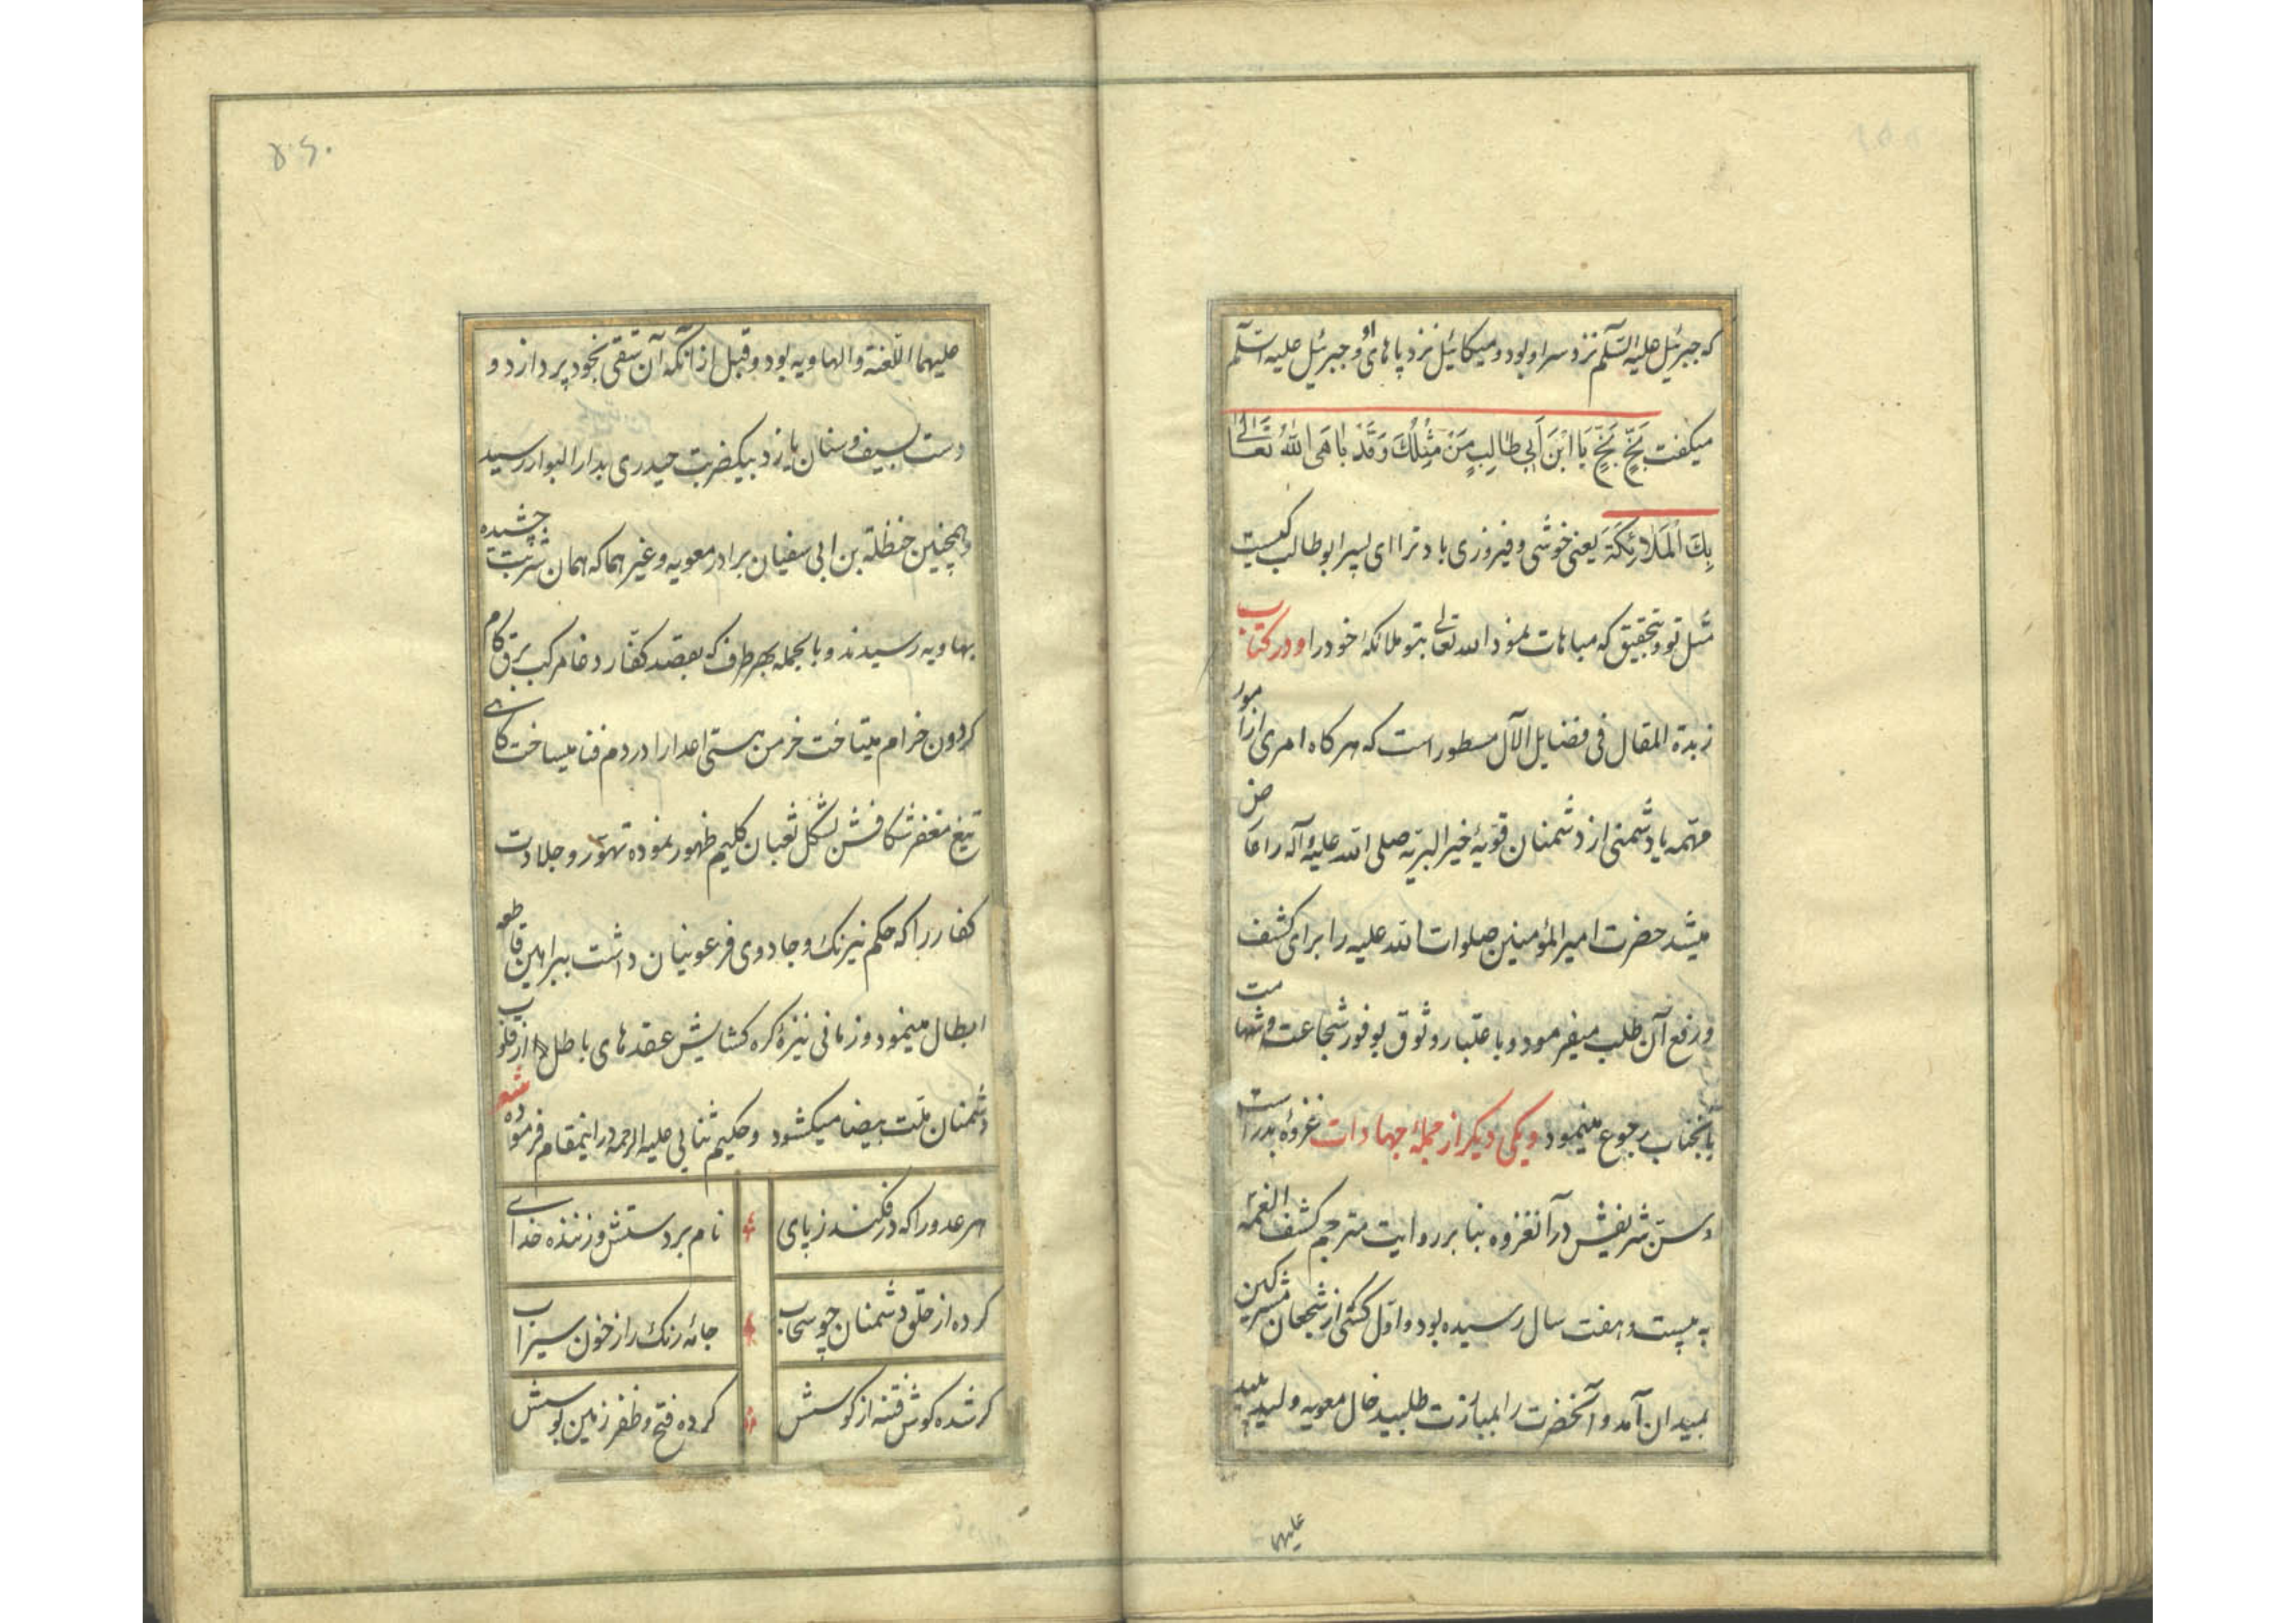 که جبرئیل علیه السّلم نزد سر او بود و میکائیل نزد پاهای او و جبرئیل علیه السّلم
میکفت بَخٍّ بَخٍّ یَا ابْنَ اَبی طالِبٍ مَنْ مِثْلُکَ وَقَدْ باهَی اللّٰهُ تَعَالیٰ
بِکَ الْمَلائِکَةَ یعنی خوشی و فیروزی باد ترا ای پسر ابوطالب کیست
مثل تو و بتحقیق که مباهات نمود الله تعالی بتو ملائکهٔ خود را و در کتاب
زبدة المقال فی فضایل الآل مسطور است که هر کاه امری از امور
مهمّه یا دشمنی از دشمنان قویهٔ خیر البریّه صلی الله علیه و آله را عارض
میشد حضرت امیر المؤمنین صلوات الله علیه را برای کشف
و رفع آن طلب میفرمود و باعتبار وثوق بوفور شجاعت و شهامت
بانجناب رجوع مینمود و یکی دیکر از جملهٔ جهادات غزوهٔ بدر است
و سنّ شریفش در آنغزوه بنا بر روایت مترجم کشف الغمّه
به بیست و هفت سال رسیده بود و اوّل کسی از شجعان مشرکین
بمیدان آمد و آنحضرت را بمبارزت طلبید خال معویه ولید پلید
علیهما
۵۶۰
علیهما اللّعنة و الهاویه بود و قبل از آنکه آن شقی بخود پردازد و
دست بسیف و سنان یازد بیکضربت حیدری بدار البوار رسید
و همچنین حنظلة بن ابی سفیان برادر معویه و غیر هما که همان شربت چشیده
بهاویه رسیدند و بالجمله بهر طرف که بقصد کفّار دغا مرکب برق کام
کردون خرام میتاخت خرمن هستی اعدا را در دم فنا میساخت کاهی
تیغ مغفر شکافش بشکل ثعبان کلیم ظهور نموده تهوّر و جلادت
کفار را که حکم نیرنک و جادوی فرعونیان داشت ببراهین قاطعه
ابطال مینمود و زمانی نیزهٔ کره کشایش عقدهای باطل را از قلوب
دشمنان ملّت بیضا میکشود و حکیم ثنایی علیه الرحمه در اینمقام فرموده شعر
هر عدو را که درفکند ز پای نام بر دستش و زننده خدای
کرده از حلق دشمنان چو سحاب جامه رنک را از خون سیراب
کر شده کوش فتنه از کوسش کرده فتح و ظفر زمین بوسش